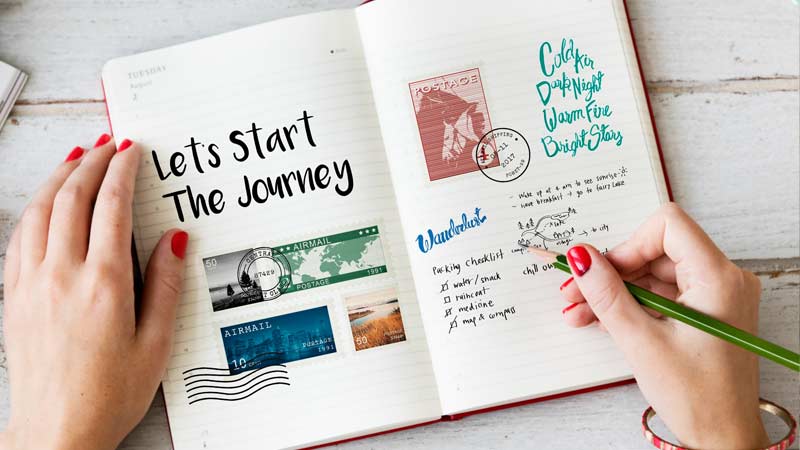 TUESDAY
August
2
Let's Start
The Journey
50
CENTRA
87429
AIRMAIL
POSTAGE 1991
AIRMAIL
POSTAGE
1991
10
50
POSTAGE
SHIPPING
09-11
2017
Cold Air
Dark Night
Warm Fire
Bright Stars
- Wake up at 4 am to see sunrise
- have breakfast → go to fairy Lake
lake
to city
chill ou
Wanderlust
Packing Checklist
water/snack
raincoat
medicine
map & compass